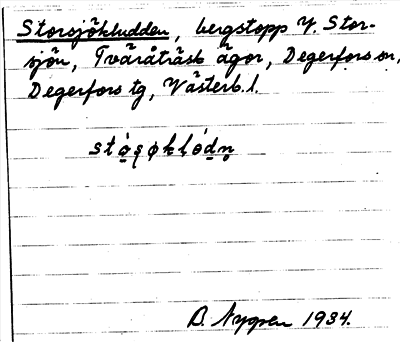 Storsjökludden, bergstopp V. Stor-
sjön, Tväråträsk ägor, Degerfors sn,
Degerfors tg, Västerb. l.
B. Nygren 1934.